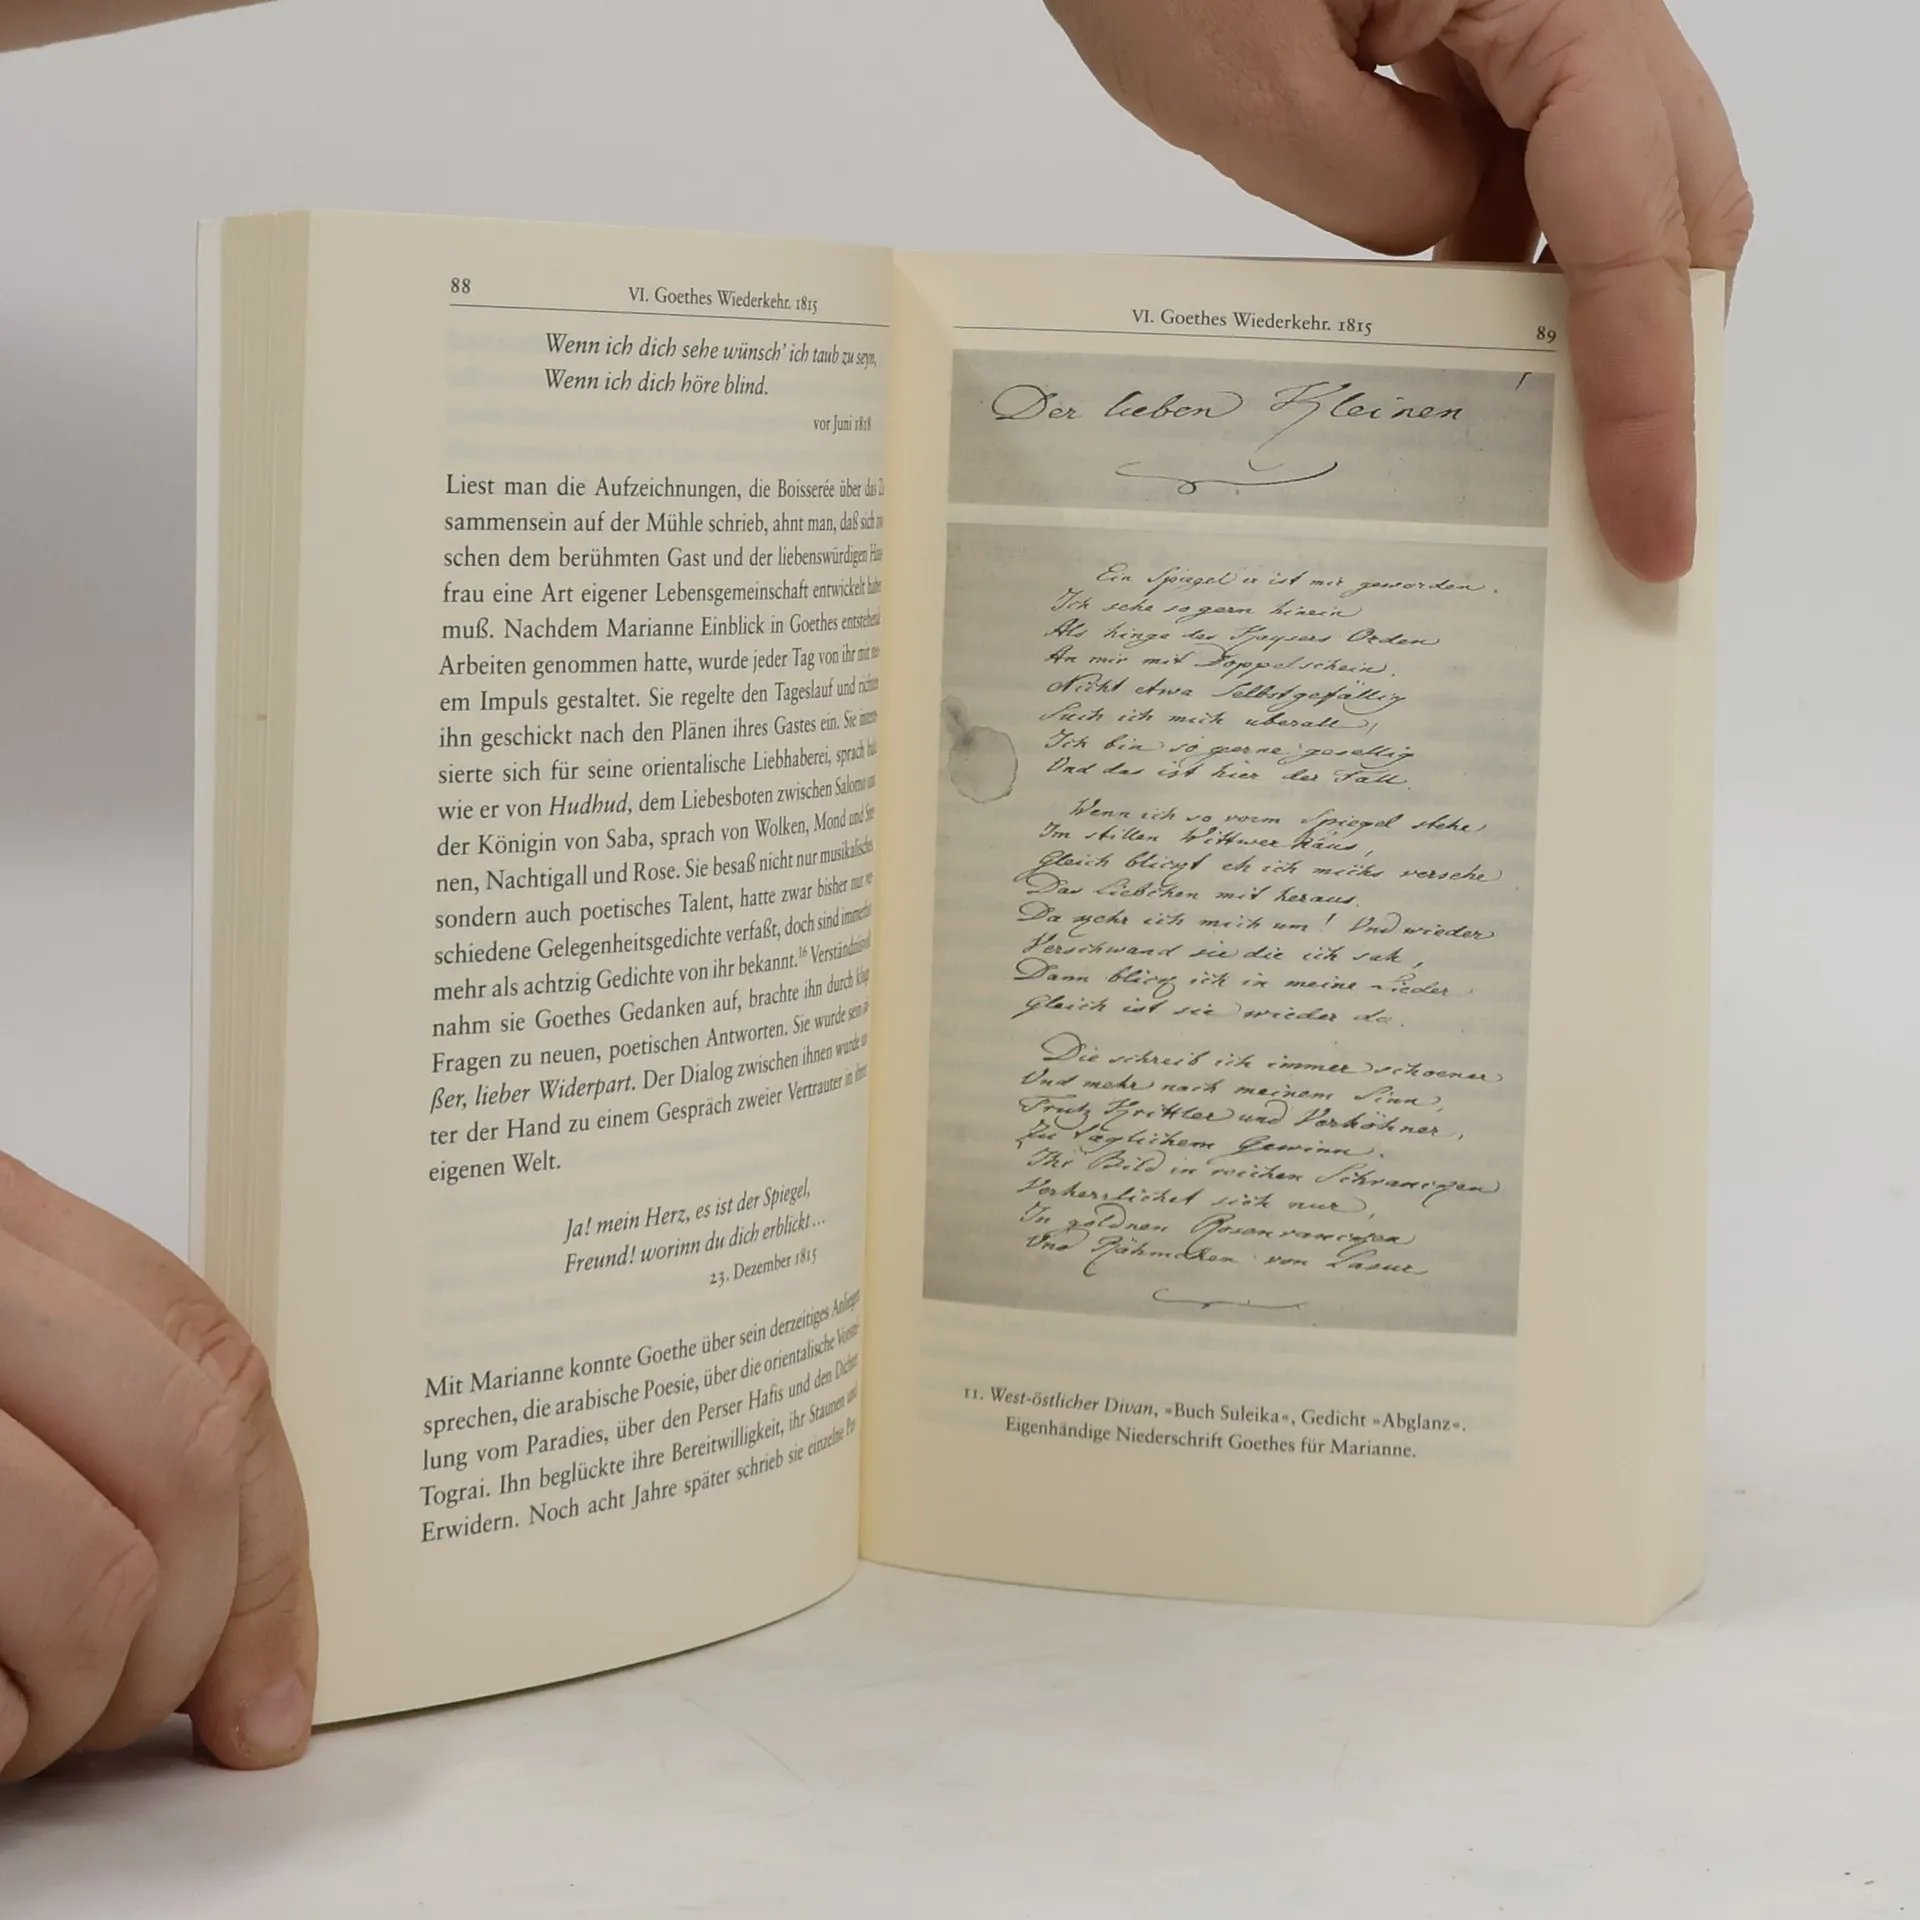 88
VI. Goethes Wiederkehr. 1815
Wenn ich dich sehe wünsch' ich taub zu seyn,
Wenn ich dich höre blind.
vor Juni 1818
Liest man die Aufzeichnungen, die Boisserée über das
sammensein auf der Mühle schrieb, ahnt man, daß sich
schen dem berühmten Gast und der liebenswürdigen
frau eine Art eigener Lebensgemeinschaft entwickelt
muß. Nachdem Marianne Einblick in Goethes
Arbeiten genommen hatte, wurde jeder Tag von ihr mit
em Impuls gestaltet. Sie regelte den Tageslauf und
ihn geschickt nach den Plänen ihres Gastes ein. Sie
sierte sich für seine orientalische Liebhaberei, sprach
wie er von Hudhud, dem Liebesboten zwischen Salomo
der Königin von Saba, sprach von Wolken, Mond und
nen, Nachtigall und Rose. Sie besaß nicht nur musikalisches
sondern auch poetisches Talent, hatte zwar bisher nur
schiedene Gelegenheitsgedichte verfaßt, doch sind
mehr als achtzig Gedichte von ihr bekannt.16
nahm sie Goethes Gedanken auf, brachte ihn durch
Fragen zu neuen, poetischen Antworten. Sie wurde sein
ßer, lieber Widerpart. Der Dialog zwischen ihnen wurde
ter der Hand zu einem Gespräch zweier Vertrauter in
eigenen Welt.
Ja! mein Herz, es ist der Spiegel,
Freund! worinn du dich erblickt...
23. Dezember 1815
Mit Marianne konnte Goethe über sein derzeitiges
sprechen, die arabische Poesie, über die orientalische
lung vom Paradies, über den Perser Hafis und den
Tograi. Ihn beglückte ihre Bereitwilligkeit, ihr Staunen und
Erwidern. Noch acht Jahre später schrieb sie einzelne
VI. Goethes Wiederkehr. 1815
89
Der lieben Kleinen
Ein Spiegel er ist mir geworden.
Ich sehe so gern hinein
Als hinge des Kaysers Orden
An mir mit Doppelschein.
Nicht etwa Selbstgefällig
Such ich mich uberall,
Ich bin so gerne gesellig
Und das ist hier der Fall.
Wenn ich so vorm Spiegel stehe
Im stillen Wittwer Haus,
Gleich blickt eh ich michs versehe
Das Liebchen mit heraus.
Da kehr ich mich um! Und wieder
Verschwand sie die ich sah,
Dann blick ich in meine Lieder
Gleich ist sie wieder da.
Die schreib ich immer schoener
Und mehr nach meinem Sinn,
Trutz Krittler und Verhöhner,
Zu täglichem Gewinn.
Ihr Bild in reichen Schrancken
Verherrlichet sich nur,
In goldnen Rosenrancken
Und Rähmchen von Lasur
11. West-östlicher Divan, »Buch Suleika«, Gedicht »Abglanz«.
Eigenhändige Niederschrift Goethes für Marianne.